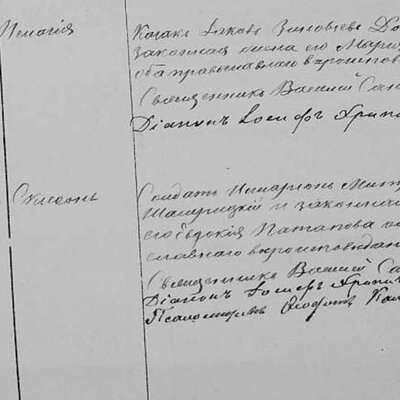 Пелагія
Козакъ Іаковъ Зиновіевъ
законная жена его Марія
оба православнаго вѣроисповѣ
Священникъ Василій Сав
Діаконъ Іосифъ Хрип
Симеонъ
Солдатъ Иларіонъ Мит
и законная
его Евдокія Патапова
славнаго вѣроисповѣдан
Священникъ Василій Са
Діаконъ Іосифъ Хрип
Псаломщикъ Ѳеофилъ Ка